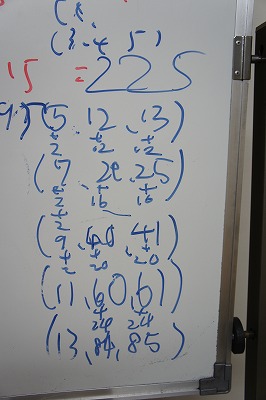 (3, 4, 5)
15 = 225
(5, 12, 13)
+2 +12 +12
(7, 24, 25)
+2 +16 +16
(9, 40, 41)
+2 +20 +20
(11, 60, 61)
+24 +24
(13, 84, 85)